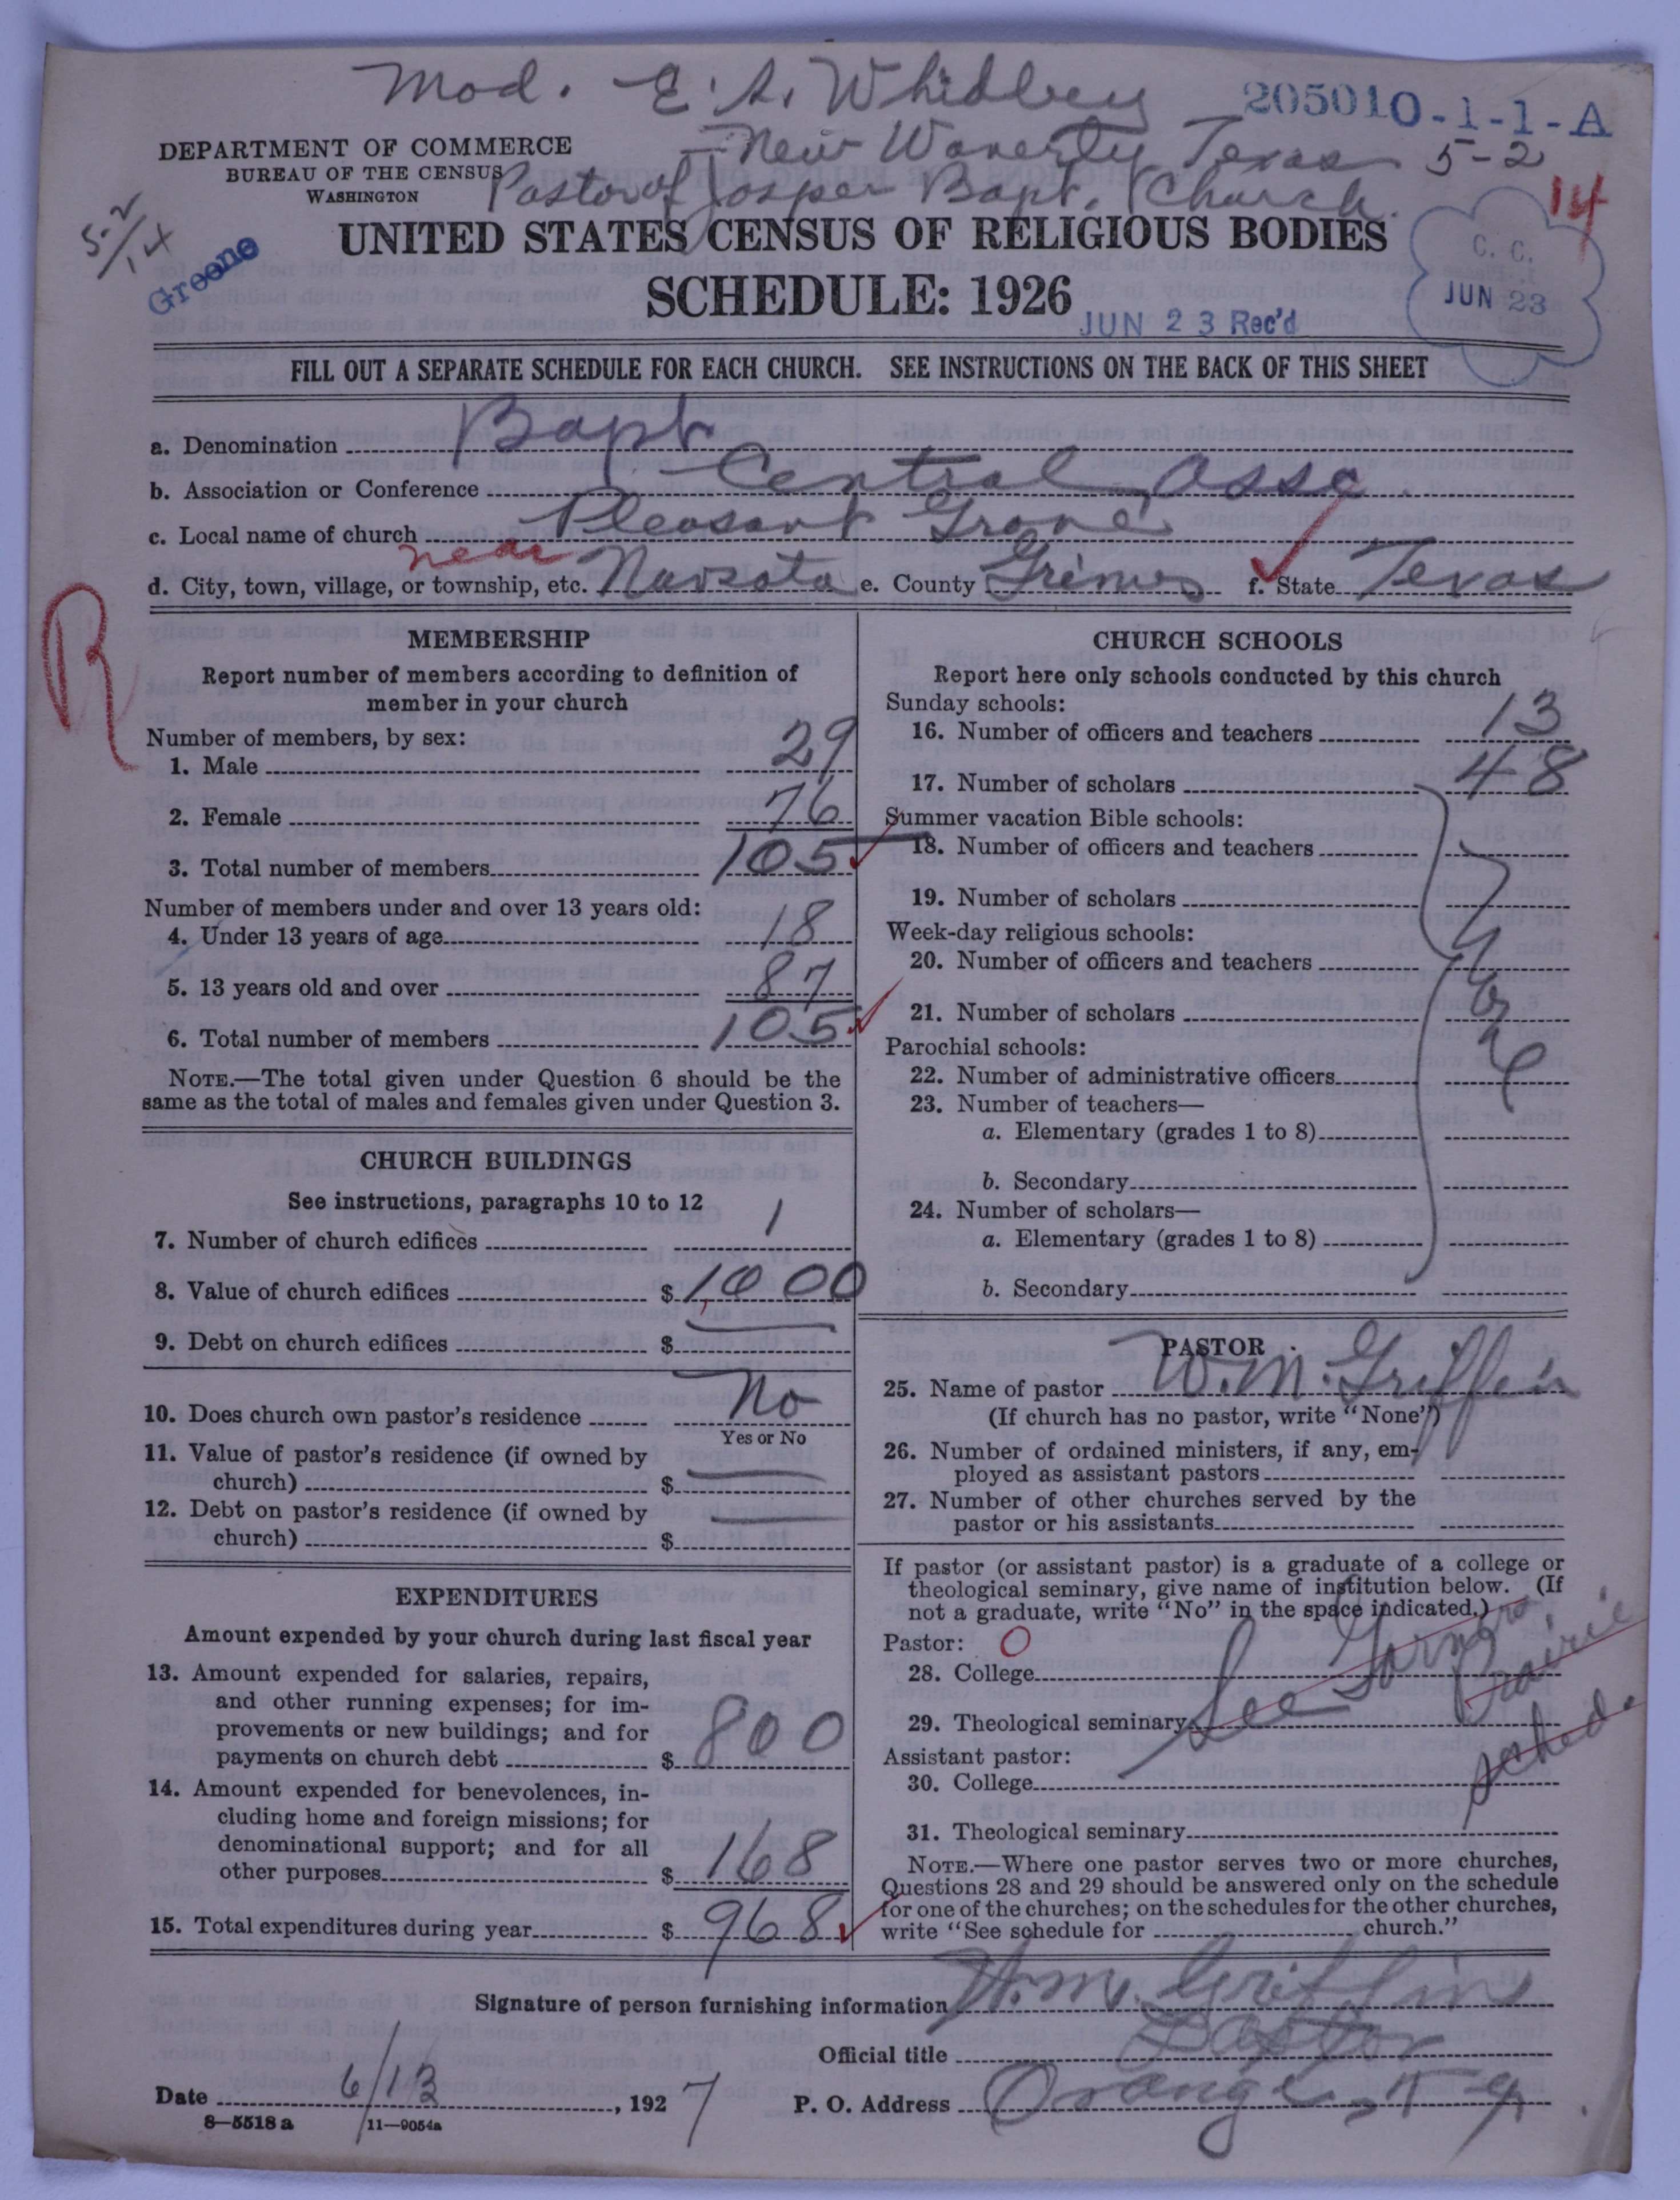 Mod. E. A. Whidbey
205010-1-1-A
New Waverly Texas 5-2
DEPARTMENT OF COMMERCE
BUREAU OF THE CENSUS
WASHINGTON
Pastor of Josper Bapt. Church.
14
5-2/14
Greene
UNITED STATES CENSUS OF RELIGIOUS BODIES
SCHEDULE: 1926
C. C.
JUN 23
JUN 23 Rec'd
FILL OUT A SEPARATE SCHEDULE FOR EACH CHURCH. SEE INSTRUCTIONS ON THE BACK OF THIS SHEET
a. Denomination Bapt
b. Association or Conference Central Asso
c. Local name of church Pleasant Grove
near
d. City, town, village, or township, etc. Navsota e. County Grimes f. State Texas
R
MEMBERSHIP
Report number of members according to definition of
member in your church
Number of members, by sex:
1. Male 29
2. Female 76
3. Total number of members 105
Number of members under and over 13 years old:
4. Under 13 years of age 18
5. 13 years old and over 87
6. Total number of members 105
NOTE.—The total given under Question 6 should be the
same as the total of males and females given under Question 3.
CHURCH BUILDINGS
See instructions, paragraphs 10 to 12
7. Number of church edifices 1
8. Value of church edifices $ 1000
9. Debt on church edifices $
10. Does church own pastor's residence No
Yes or No
11. Value of pastor's residence (if owned by
church) $
12. Debt on pastor's residence (if owned by
church) $
EXPENDITURES
Amount expended by your church during last fiscal year
13. Amount expended for salaries, repairs,
and other running expenses; for im-
provements or new buildings; and for
payments on church debt $ 800
14. Amount expended for benevolences, in-
cluding home and foreign missions; for
denominational support; and for all
other purposes $ 168
15. Total expenditures during year $ 968
CHURCH SCHOOLS
Report here only schools conducted by this church
Sunday schools:
16. Number of officers and teachers 13
17. Number of scholars 48
Summer vacation Bible schools:
18. Number of officers and teachers
19. Number of scholars
Week-day religious schools:
20. Number of officers and teachers
21. Number of scholars
Parochial schools:
22. Number of administrative officers
23. Number of teachers—
a. Elementary (grades 1 to 8)
b. Secondary
24. Number of scholars—
a. Elementary (grades 1 to 8)
b. Secondary
PASTOR
25. Name of pastor W. M. Griffin
(If church has no pastor, write "None")
26. Number of ordained ministers, if any, em-
ployed as assistant pastors
27. Number of other churches served by the
pastor or his assistants
If pastor (or assistant pastor) is a graduate of a college or
theological seminary, give name of institution below. (If
not a graduate, write "No" in the space indicated.) no.
Pastor: O
28. College
See Prairie
29. Theological seminary
sched.
Assistant pastor:
30. College
31. Theological seminary
NOTE.—Where one pastor serves two or more churches,
Questions 28 and 29 should be answered only on the schedule
for one of the churches; on the schedules for the other churches,
write "See schedule for church."
Signature of person furnishing information W. M. Griffin
Official title Pastor
Date 6/13, 1927 P. O. Address Orange, T
8—5518 a 11—9054a